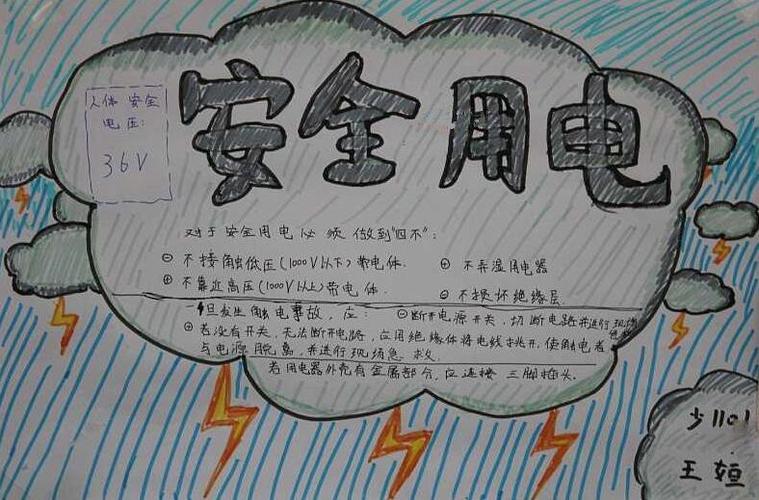 安全用电
人体安全
电压:
36V
对于安全用电必须做到"四不":
⊖不接触低压(1000V以下)带电体. ⊕不弄湿用电器
⊕不靠近高压(1000V以上)带电体. ⊖不损坏绝缘层.
一旦发生触电事故,应: ⊖断开电源开关,切断电路并进行现场急救
⊕若没有开关,无法断开电路,应用绝缘体将电线挑开,使触电者
与电源脱离,并进行现场急救.
若用电器外壳有金属部分,应连接三脚插头.
少1101
王姮